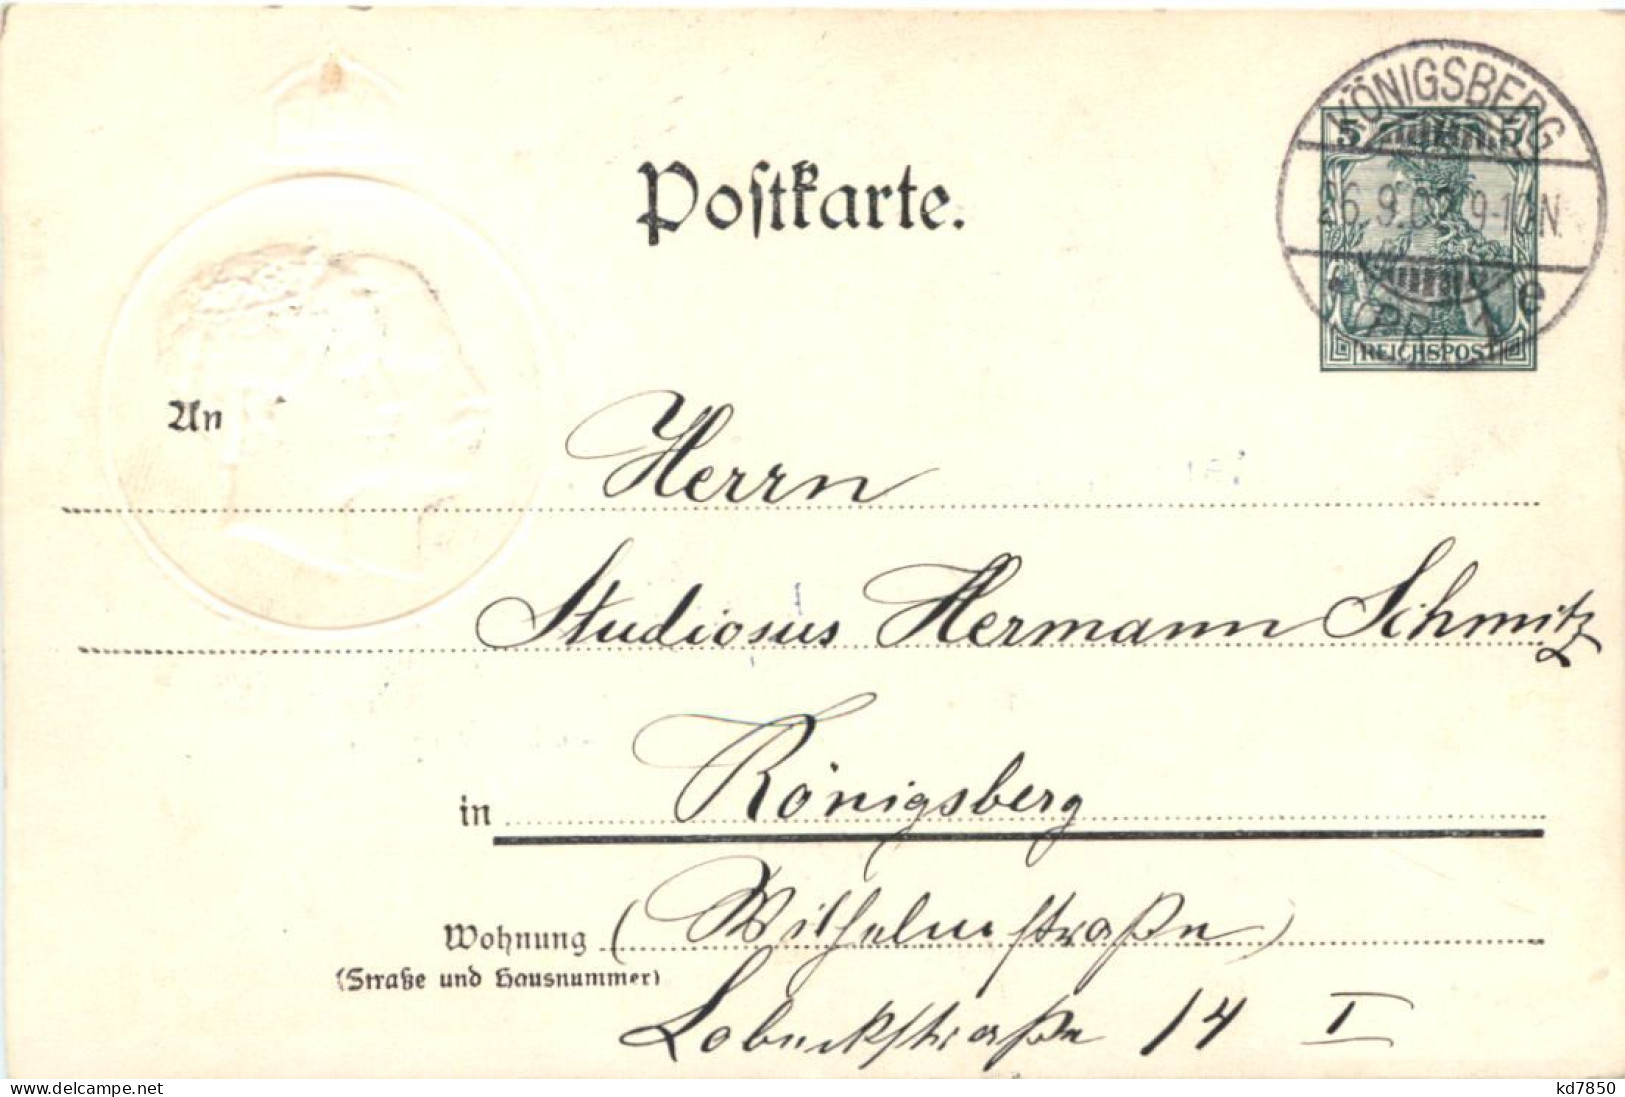 Postkarte.
KÖNIGSBERG
5 5
26.9.02 9-10N.
(PR) 1 e
REICHSPOST
An
Herrn
Studiosus Hermann Schmitz
in Königsberg
Wohnung (Wilhelmstraße)
(Straße und Hausnummer)
Lobeckstraße 14 I
www.delcampe.net
kd7850